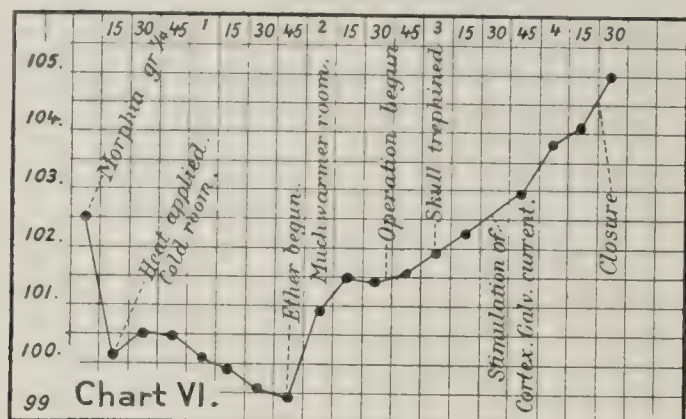 15 30 45 1 15 30 45 2 15 30 45 3 15 30 45 4 15 30
105.
104.
103.
102
101.
100.
99
Morphia gr ¼
Heat applied.
Cold room.
Ether begun.
Much warmer room.
Operation begun
Skull trephined
Stimulation of
Cortex. Galv. current.
Closure
Chart VI.